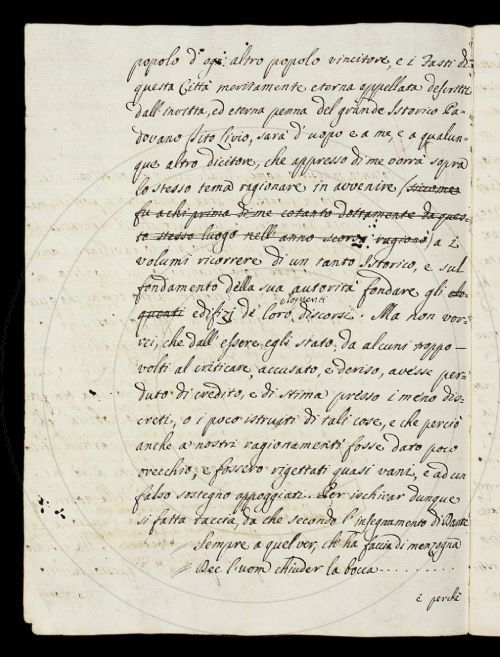 popolo d'ogi altro popolo vincitore, e i Fasti di
questa Città meritamente eterna appellata descritti
dall'invitta, ed eterna penna del grande Istorico Pa-
dovano Tito Livio, sarà d'uopo e a me, e a qualun-
que altro dicitore, che appresso di me vorrà sopra
lo stesso tema ragionare in avvenire (siccome
fu a chi prima di me cotanto dottamente da ques-
to stesso luogo nell'anno scorso ragionò) a i
volumi ricorrere di un tanto Istorico, e sul
fondamento della sua autorità fondare gli elo-
quenti edifizj de' loro eloquenti discorsi. Ma non vor-
rei, che dall'essere egli stato, da alcuni troppo
volti al criticare, accusato, e deriso, avesse per-
duto di credito, e di stima presso i meno dis-
creti, o i poco istruiti di tali cose, e che perciò
anche a nostri ragionamenti fosse dato poco
orecchio, e fossero rigettati quasi vani, e ad un
falso sostegno appoggiati. Per ischivar dunque
si fatta taccia, da che secondo l'insegnamento di Dante
Sempre a quel ver, ch'ha faccia di menzogna
Dee l'uom chiuder la bocca . . . . . . . . .
è perchè